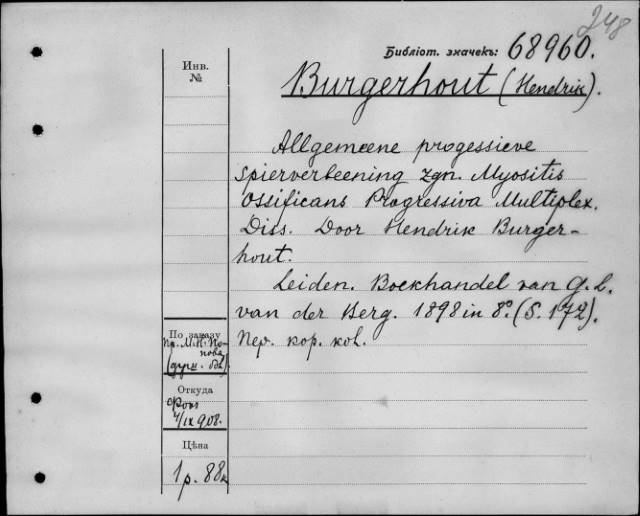 248
Библіот. значекъ: 68960.
Инв.
№
Burgerhout (Hendrik).
Allgemeene progessieve
spierverbeening zgn. Myositis
Ossificans Progressiva Multiplex.
Diss. Door Hendrik Burger-
hout.
Leiden. Boekhandel van G. L.
van der Berg. 1898 in 8°. (S. 172).
Пер. кор. кол.
По заказу
пр. М. Н. По-
пова
Откуда
4/IX 908.
Цѣна
1 р. 88к